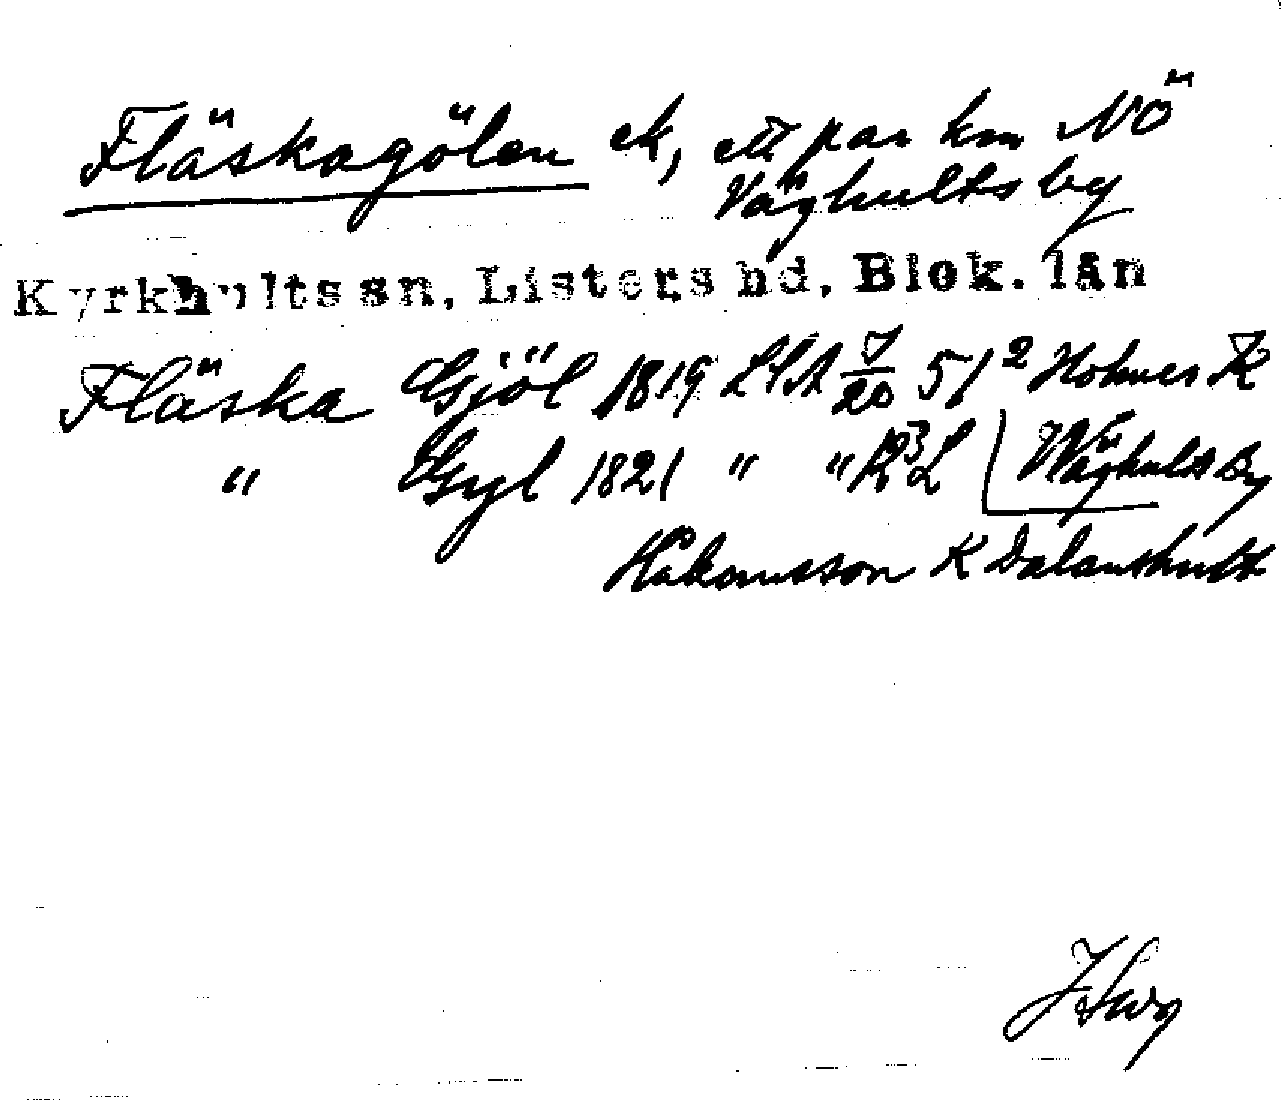 Fläskagölen ek, ett par km NÖ
Väghults by
Kyrkhults sn, Listers hd, Blek. län
Fläska Gjöl 1819 LSA 7/20 51² K
" Gyl 1821 " " Wäghult By
Håkansson K Dalanshult